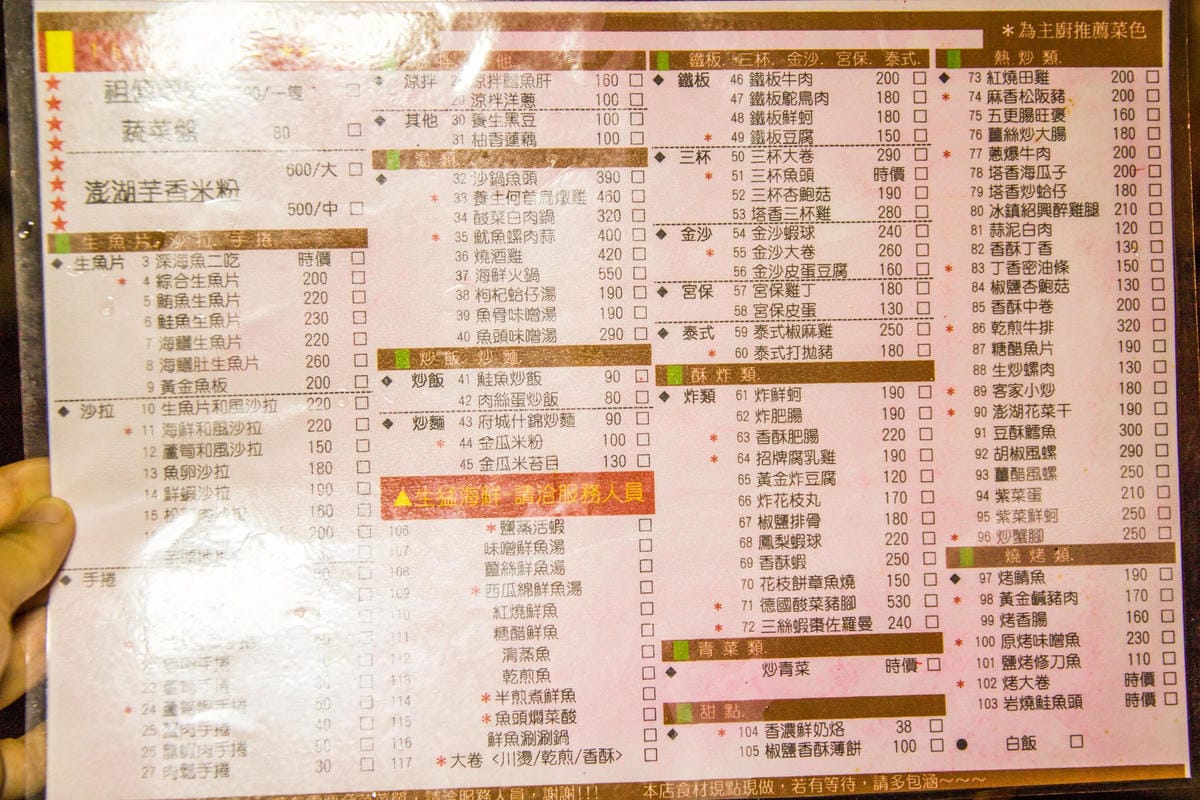 *為主廚推薦菜色
蔬菜盤 80
600/大
澎湖芋香米粉
500/中
生魚片. 沙拉. 手捲.
◆ 生魚片 3 深海魚二吃 時價
* 4 綜合生魚片 200
5 鮪魚生魚片 220
6 鮭魚生魚片 230
7 海鱺生魚片 220
8 海鱺肚生魚片 260
9 黃金魚板 200
◆ 沙拉 10 生魚片和風沙拉 220
* 11 海鮮和風沙拉 220
12 蘆筍和風沙拉 150
13 魚卵沙拉 180
14 鮮蝦沙拉 190
15 沙拉 160
200
◆ 手捲
手捲
23 蘆筍手捲 30
* 24 蘆筍蝦手捲 50
25 蟹肉手捲 40
25 龍蝦肉手捲 50
27 肉鬆手捲 30
◆ 涼拌 涼拌鱈魚肝 160
29 涼拌洋蔥 100
◆ 其他 30 養生黑豆 100
31 柚香蓮藕 100
湯 類
◆ 32 沙鍋魚頭 390
* 33 養生何首烏燉雞 460
34 酸菜白肉鍋 320
* 35 魷魚螺肉蒜 400
36 燒酒雞 420
37 海鮮火鍋 550
38 枸杞蛤仔湯 190
39 魚骨味噌湯 190
40 魚頭味噌湯 290
炒 飯. 炒 麵.
◆ 炒飯 41 鮭魚炒飯 90
42 肉絲蛋炒飯 80
◆ 炒麵 43 府城什錦炒麵 90
* 44 金瓜米粉 100
45 金瓜米苔目 130
▲生猛海鮮 請洽服務人員
106 *鹽蒸活蝦
107 味噌鮮魚湯
108 薑絲鮮魚湯
109 *西瓜綿鮮魚湯
110 紅燒鮮魚
111 糖醋鮮魚
112 清蒸魚
113 乾煎魚
114 *半煎煮鮮魚
115 *魚頭燜菜酸
116 鮮魚涮涮鍋
117 *大卷 <川燙/乾煎/香酥>
鐵板. 三杯. 金沙. 宮保. 泰式.
◆ 鐵板 46 鐵板牛肉 200
47 鐵板鴕鳥肉 180
48 鐵板鮮蚵 180
* 49 鐵板豆腐 150
◆ 三杯 50 三杯大卷 290
* 51 三杯魚頭 時價
52 三杯杏鮑菇 190
53 塔香三杯雞 280
◆ 金沙 54 金沙蝦球 240
* 55 金沙大卷 260
56 金沙皮蛋豆腐 160
◆ 宮保 57 宮保雞丁 180
58 宮保皮蛋 130
◆ 泰式 59 泰式椒麻雞 250
* 60 泰式打拋豬 180
酥 炸 類.
◆ 炸類 61 炸鮮蚵 190
62 炸肥腸 190
* 63 香酥肥腸 220
* 64 招牌腐乳雞 190
65 黃金炸豆腐 120
66 炸花枝丸 170
67 椒鹽排骨 180
68 鳳梨蝦球 220
69 香酥蝦 250
70 花枝餅章魚燒 150
* 71 德國酸菜豬腳 530
* 72 三絲蝦棗佐羅曼 240
青 菜 類.
◆ 炒青菜 時價
甜 點.
◆ * 104 香濃鮮奶烙 38
105 椒鹽香酥薄餅 100
熱 炒 類.
◆ 73 紅燒田雞 200
* 74 麻香松阪豬 200
75 五更腸旺褒 160
76 薑絲炒大腸 180
* 77 蔥爆牛肉 200
78 塔香海瓜子 200
79 塔香炒蛤仔 180
80 冰鎮紹興醉雞腿 210
81 蒜泥白肉 120
82 香酥丁香 130
* 83 丁香密油條 150
84 椒鹽杏鮑菇 130
85 香酥中卷 200
* 86 乾煎牛排 320
87 糖醋魚片 190
88 生炒螺肉 130
* 89 客家小炒 180
* 90 澎湖花菜干 190
91 豆酥鱈魚 300
92 胡椒風螺 290
93 薑醋風螺 250
94 紫菜蛋 210
95 紫菜鮮蚵 250
* 96 炒蟹腳 250
燒 烤 類.
◆ 97 烤鯖魚 190
* 98 黃金鹹豬肉 170
99 烤香腸 160
* 100 原烤味噌魚 230
101 鹽烤修刀魚 110
* 102 烤大卷 時價
103 岩燒鮭魚頭 時價
● 白飯
請洽服務人員，謝謝!!! 本店食材現點現做，若有等待，請多包涵~~~~